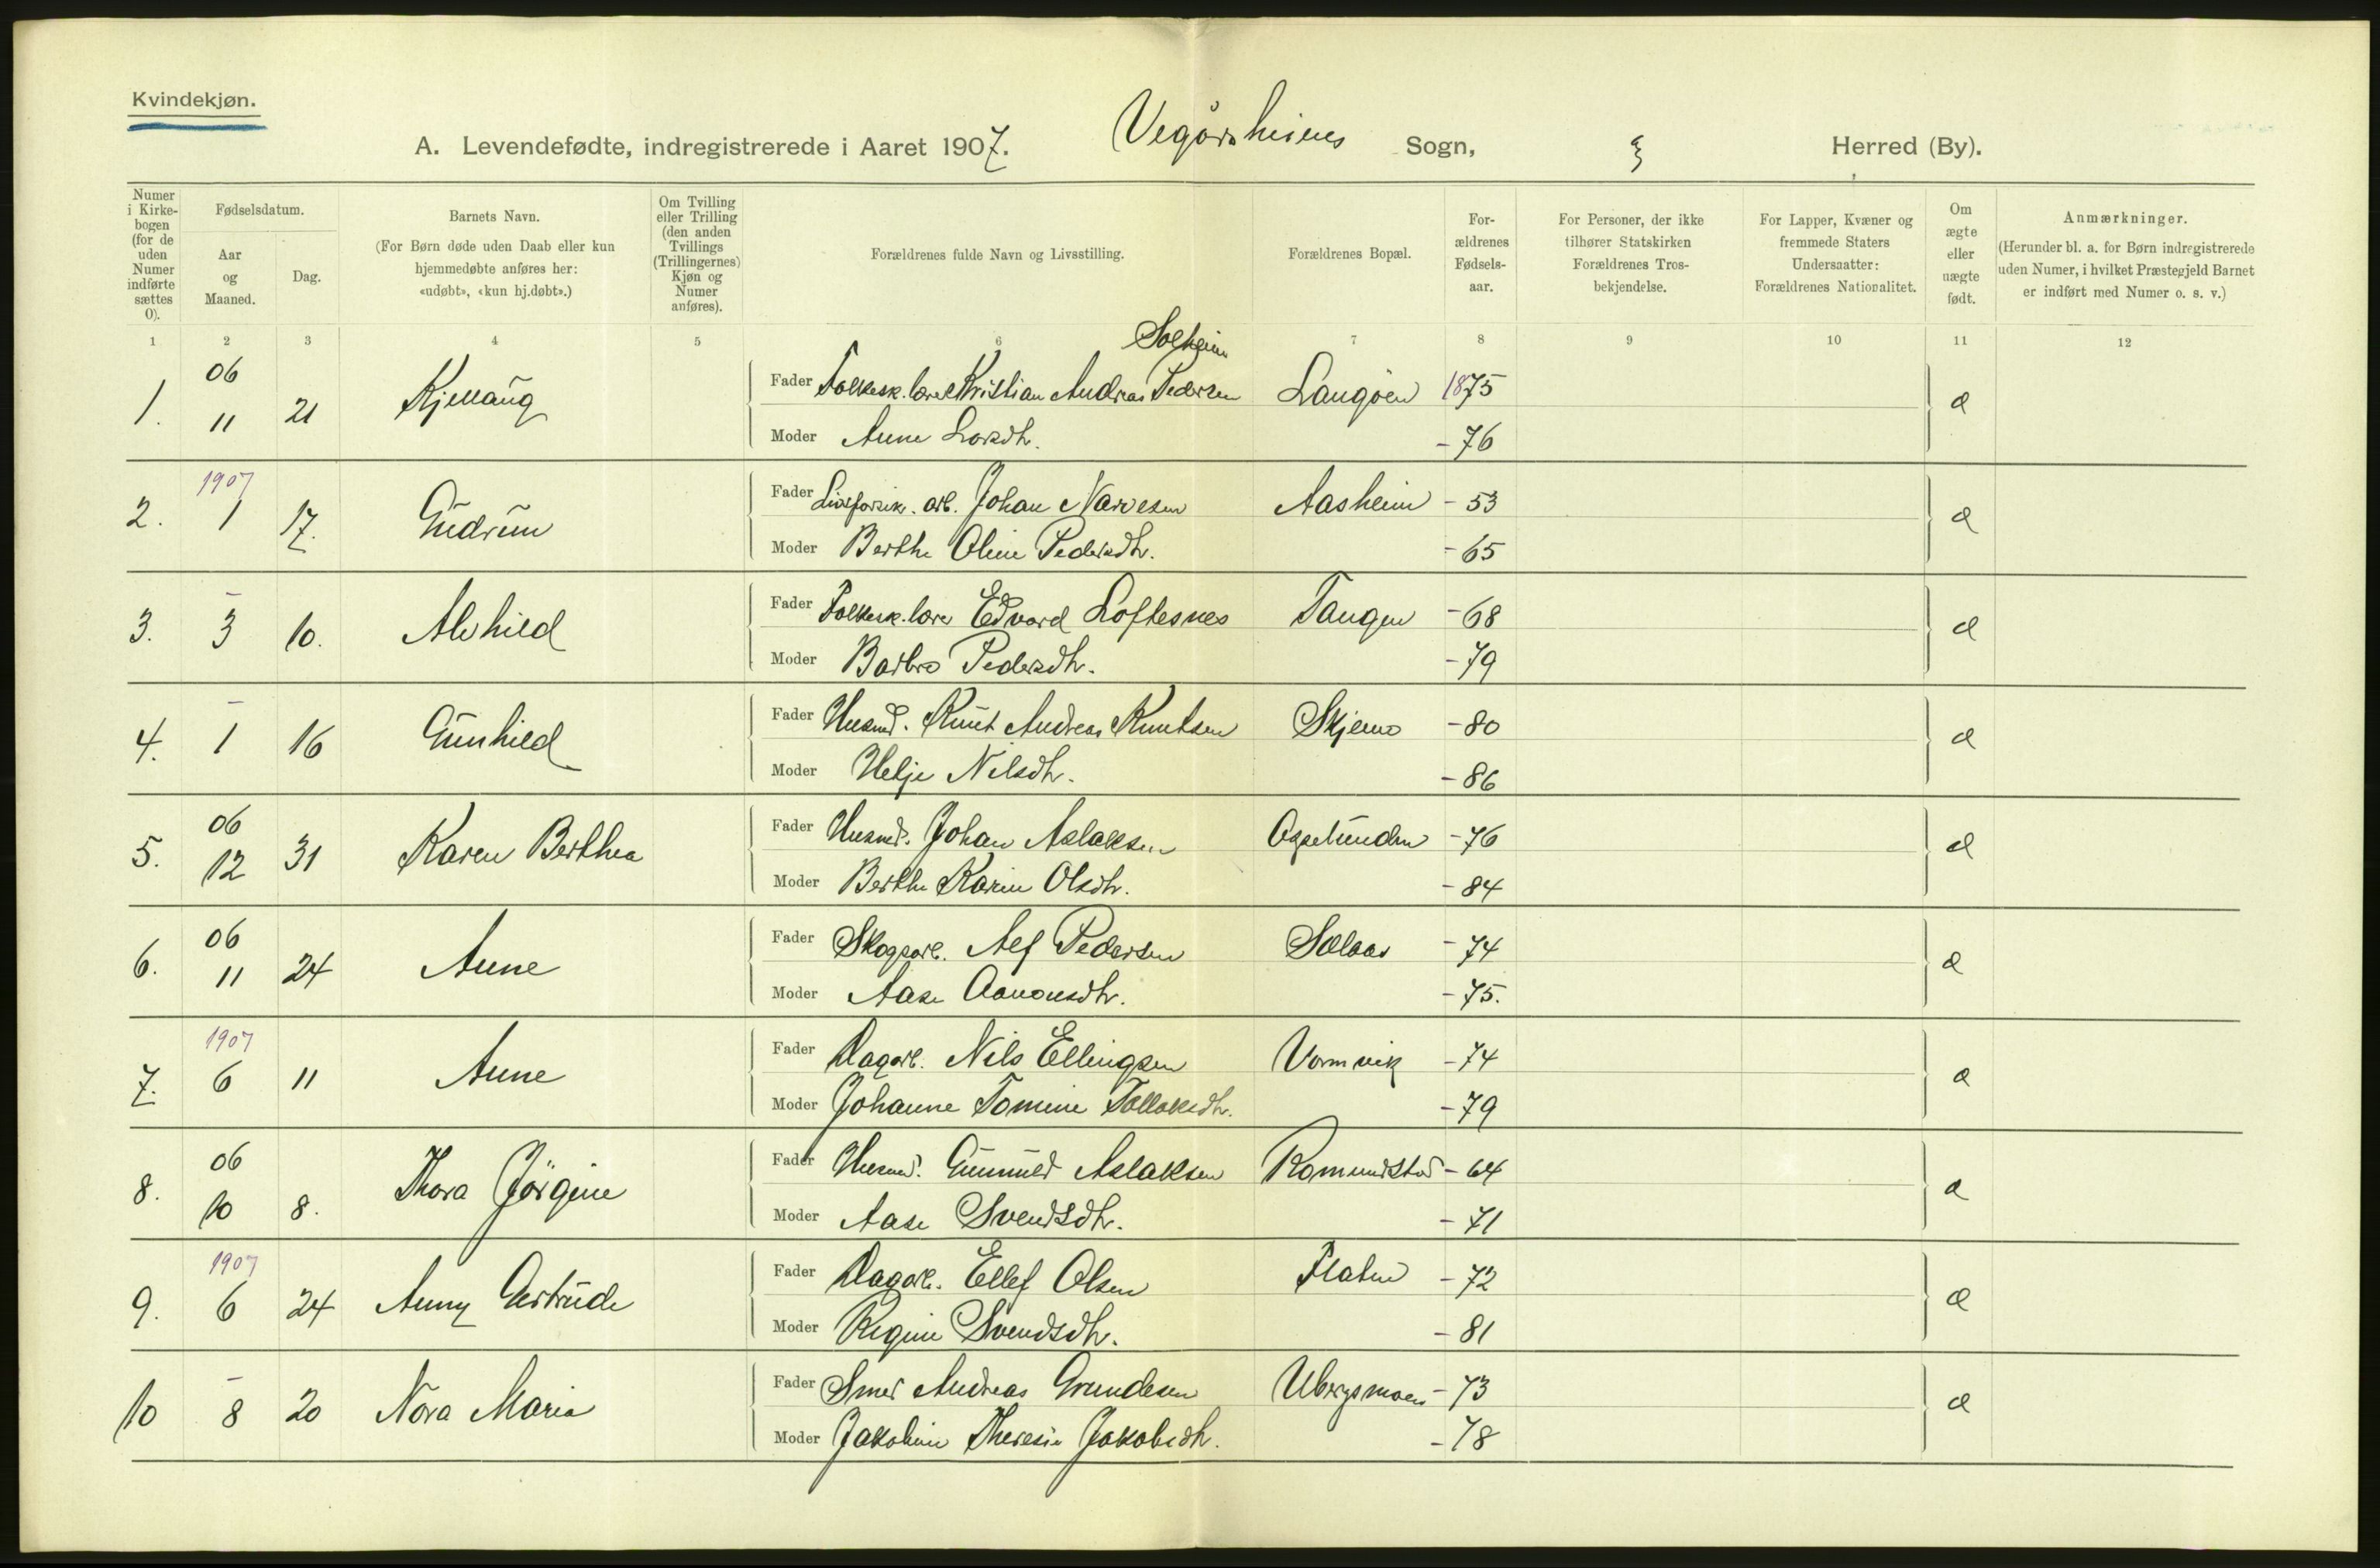 Kvindekjøn.
A. Levendefødte, indregistrerede i Aaret 1907. Vegårsheiens Sogn, Herred (By).
Numer i Kirkebogen (for de uden Numer indførte sættes 0).
Fødselsdatum.
Aar og Maaned.
Dag.
Barnets Navn.
(For Børn døde uden Daab eller kun hjemmedøbte anføres her: «udøbt», «kun hj.døbt».)
Om Tvilling eller Trilling (den anden Tvillings (Trillingernes) Kjøn og Numer anføres).
Forældrenes fulde Navn og Livsstilling.
Forældrenes Bopæl.
For-ældrenes Fødsels-aar.
For Personer, der ikke tilhører Statskirken Forældrenes Tros-bekjendelse.
For Lapper, Kvæner og fremmede Staters Undersaatter: Forældrenes Nationalitet.
Om ægte eller uægte født.
Anmærkninger.
(Herunder bl. a. for Børn indregistrerede uden Numer, i hvilket Præstegjeld Barnet er indført med Numer o. s. v.)
1 2 3 4 5 6 7 8 9 10 11 12
Solheim
1. 06 11 21 Kjellaug Fader Folkesk. lærer Kristian Andreas Pedersen Langøen 1875 æ
Moder Anne Larsdtr. - 76
2. 1907 1 17. Gudrun Fader arb. Johan Narvesen Aasheim - 53 æ
Moder Berthe Oline Pedersdtr. - 65
3. - 3 10. Alvhild Fader Folkesk. lærer Edvard Loftesnes Tangen - 68 æ
Moder Barbro Pedersdtr. - 79
4. - 1 16 Gunhild Fader Husmd. Knut Andreas Knutsen Skjerno - 80 æ
Moder Helje Nilsdtr. - 86
5. 06 12 31 Karen Berthea Fader Husmd. Johan Aslaksen - 76 æ
Moder Berthe Karine Olsdtr. - 84
6. 06 11 24 Anne Fader Skogsarb. Alf Pedersen Sælaas - 74 æ
Moder Aase Aanonsdtr. - 75.
7. 1907 6 11 Anne Fader Dagarb. Nils Ellingsen Vormvik - 74 æ
Moder Johanne Tomine Tellaksdtr. - 79
8. 06 10 8. Thora Jörgine Fader Husmd. Gunnuld Aslaksen Romundstad - 64 æ
Moder Aase Svendsdtr. - 71
9. 1907 6 24 Anny Gertrude Fader Dagarb. Ellef Olsen Flaten - 72 æ
Moder Regine Svendsdtr. - 81
10 - 8 20 Nora Maria Fader Smed Andreas Grundesen Ubergsmoen - 73 æ
Moder Jakobine Theresie Jakobsdtr. - 78